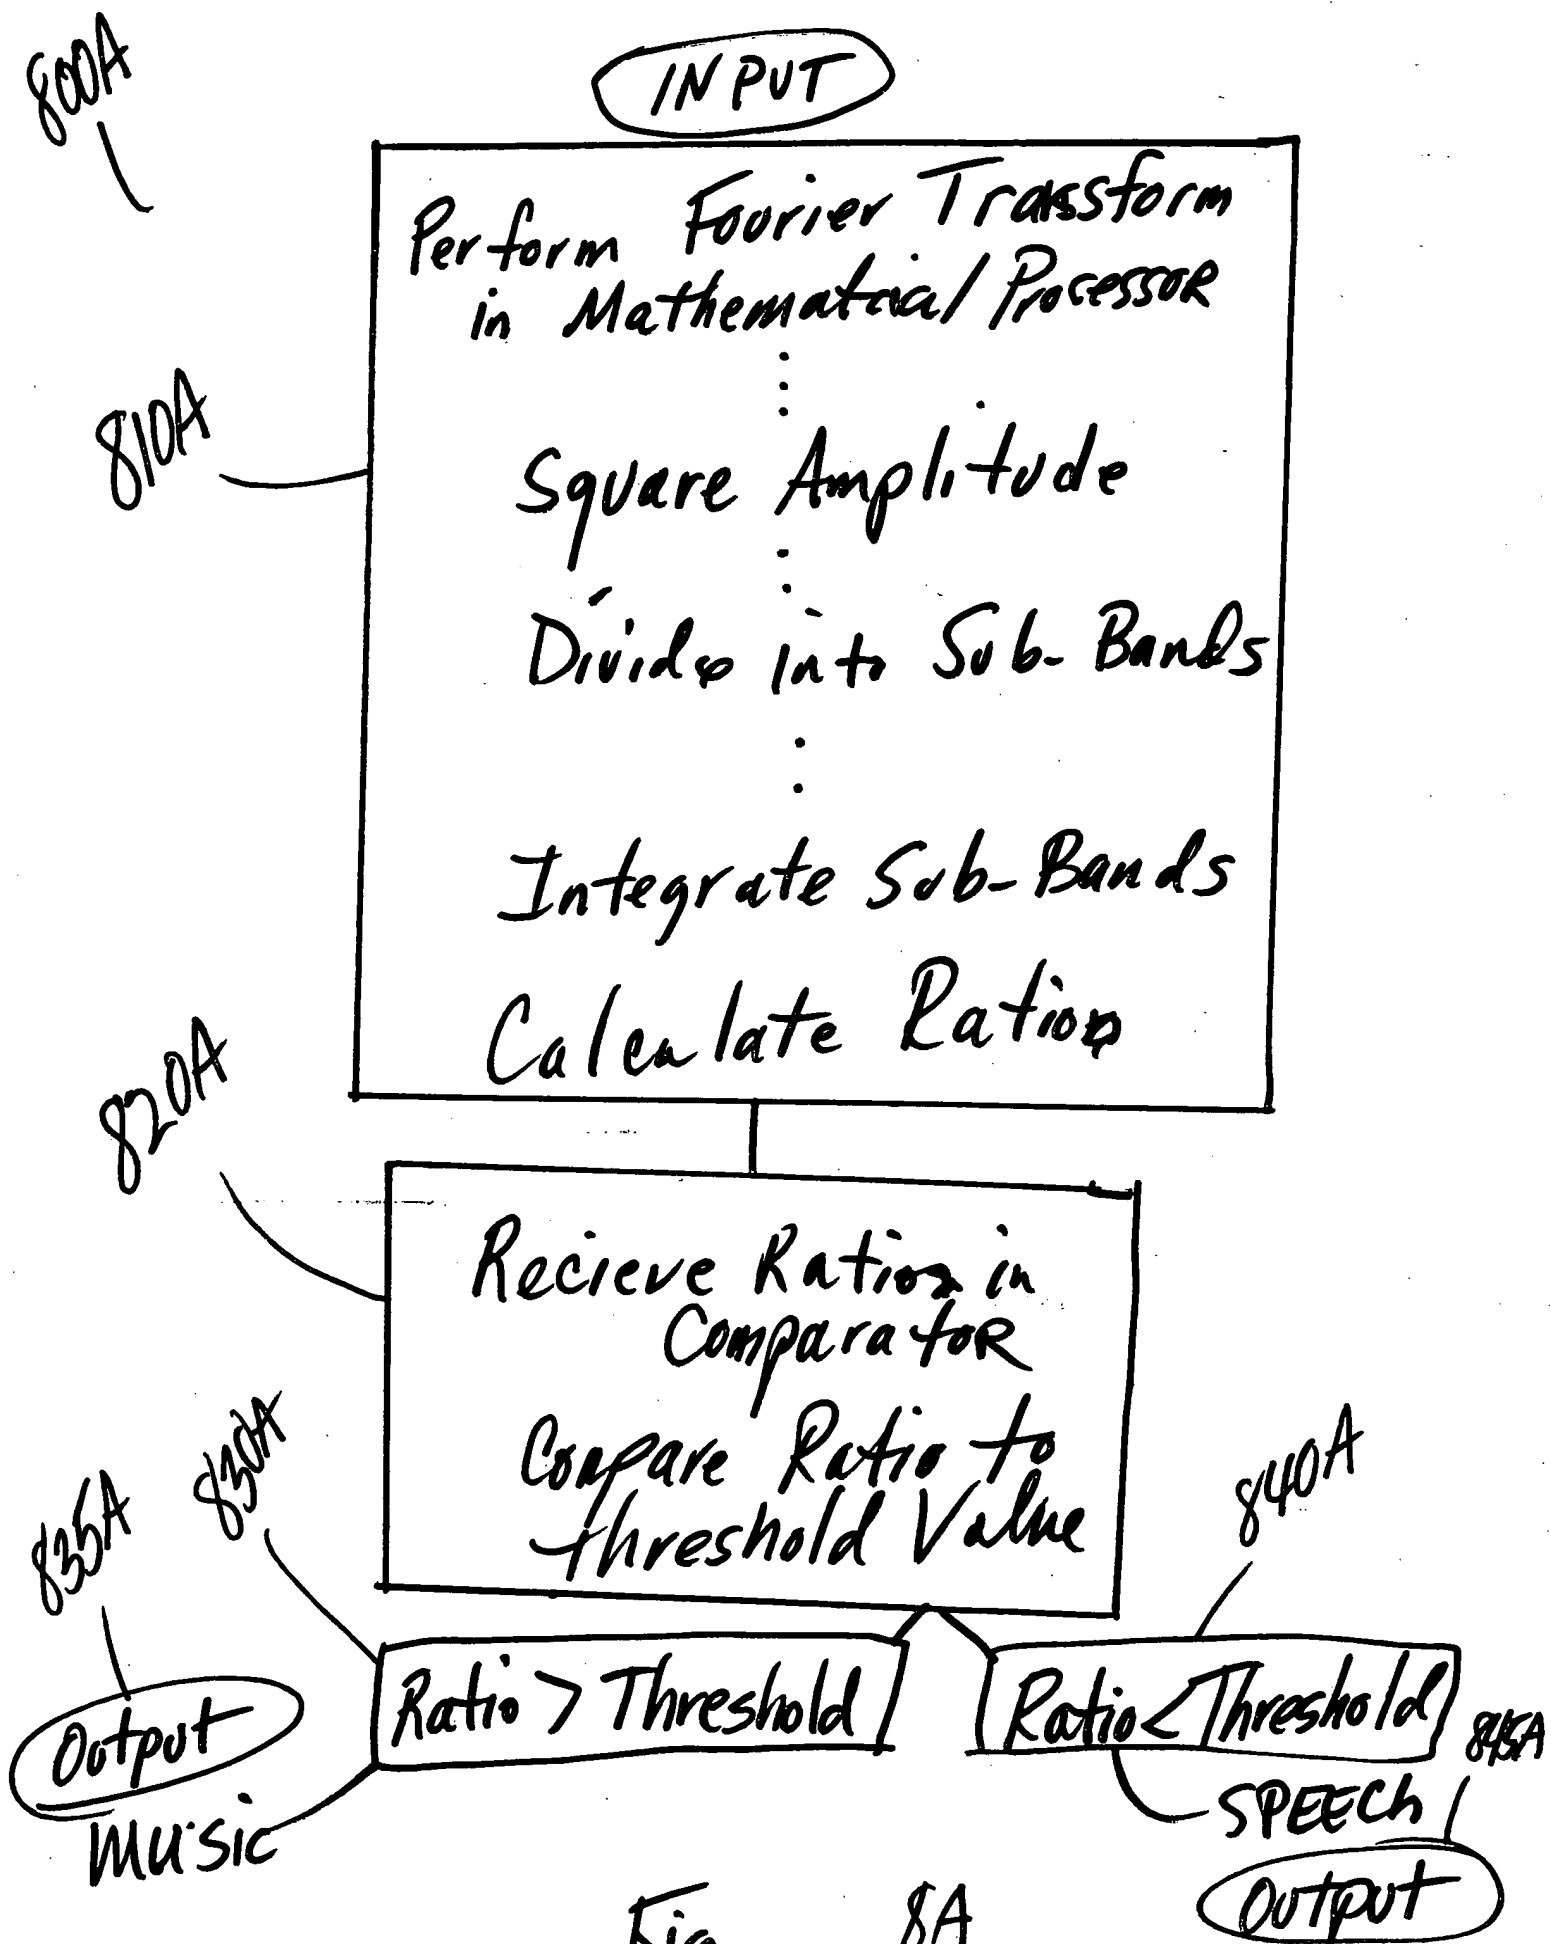 800A
INPUT
Perform Fourier Transform
in Mathematcial Processor
810A
Square Amplitude
Divide into Sub-Bands
Integrate Sub-Bands
Calculate Ratio
820A
Recieve Ratio in
Comparator
Compare Ratio to
threshold Value
830A
835A
840A
Ratio > Threshold
Ratio < Threshold
845A
Output
MUSIC
SPEECh
Output
Fig 8A